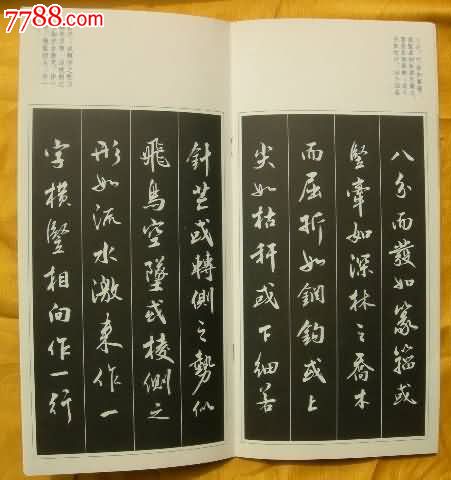 7788.com
中国收藏热线
八分而發如篆籀或
豎牽如深林之喬木
而屈折如鋼鉤或上
尖如枯稈或下細若
針芒或轉側之勢似
飛鳥空墜或棱側之
形如流水激来作一
字橫豎相向作一行